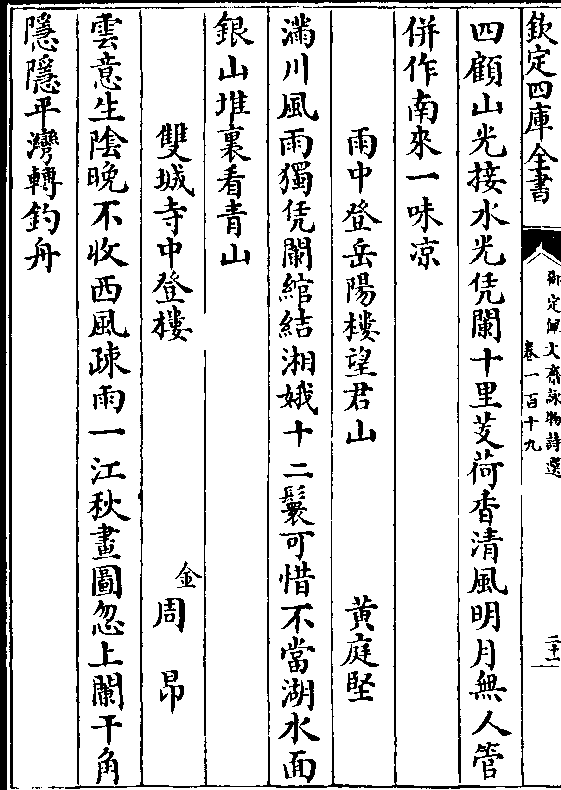 欽定四庫全書
御定佩文齋詠物詩選
卷一百十九
二十一
四顧山光接水光凭闌十里芰荷香清風明月無人管
併作南來一味凉
雨中登岳陽樓望君山 黄庭堅
滿川風雨獨凭闌綰結湘娥十二鬟可惜不當湖水面
銀山堆裏看青山
雙城寺中登樓 金周昂
雲意生陰晚不收西風疎雨一江秋畫圖忽上闌干角
隱隱平灣轉釣舟